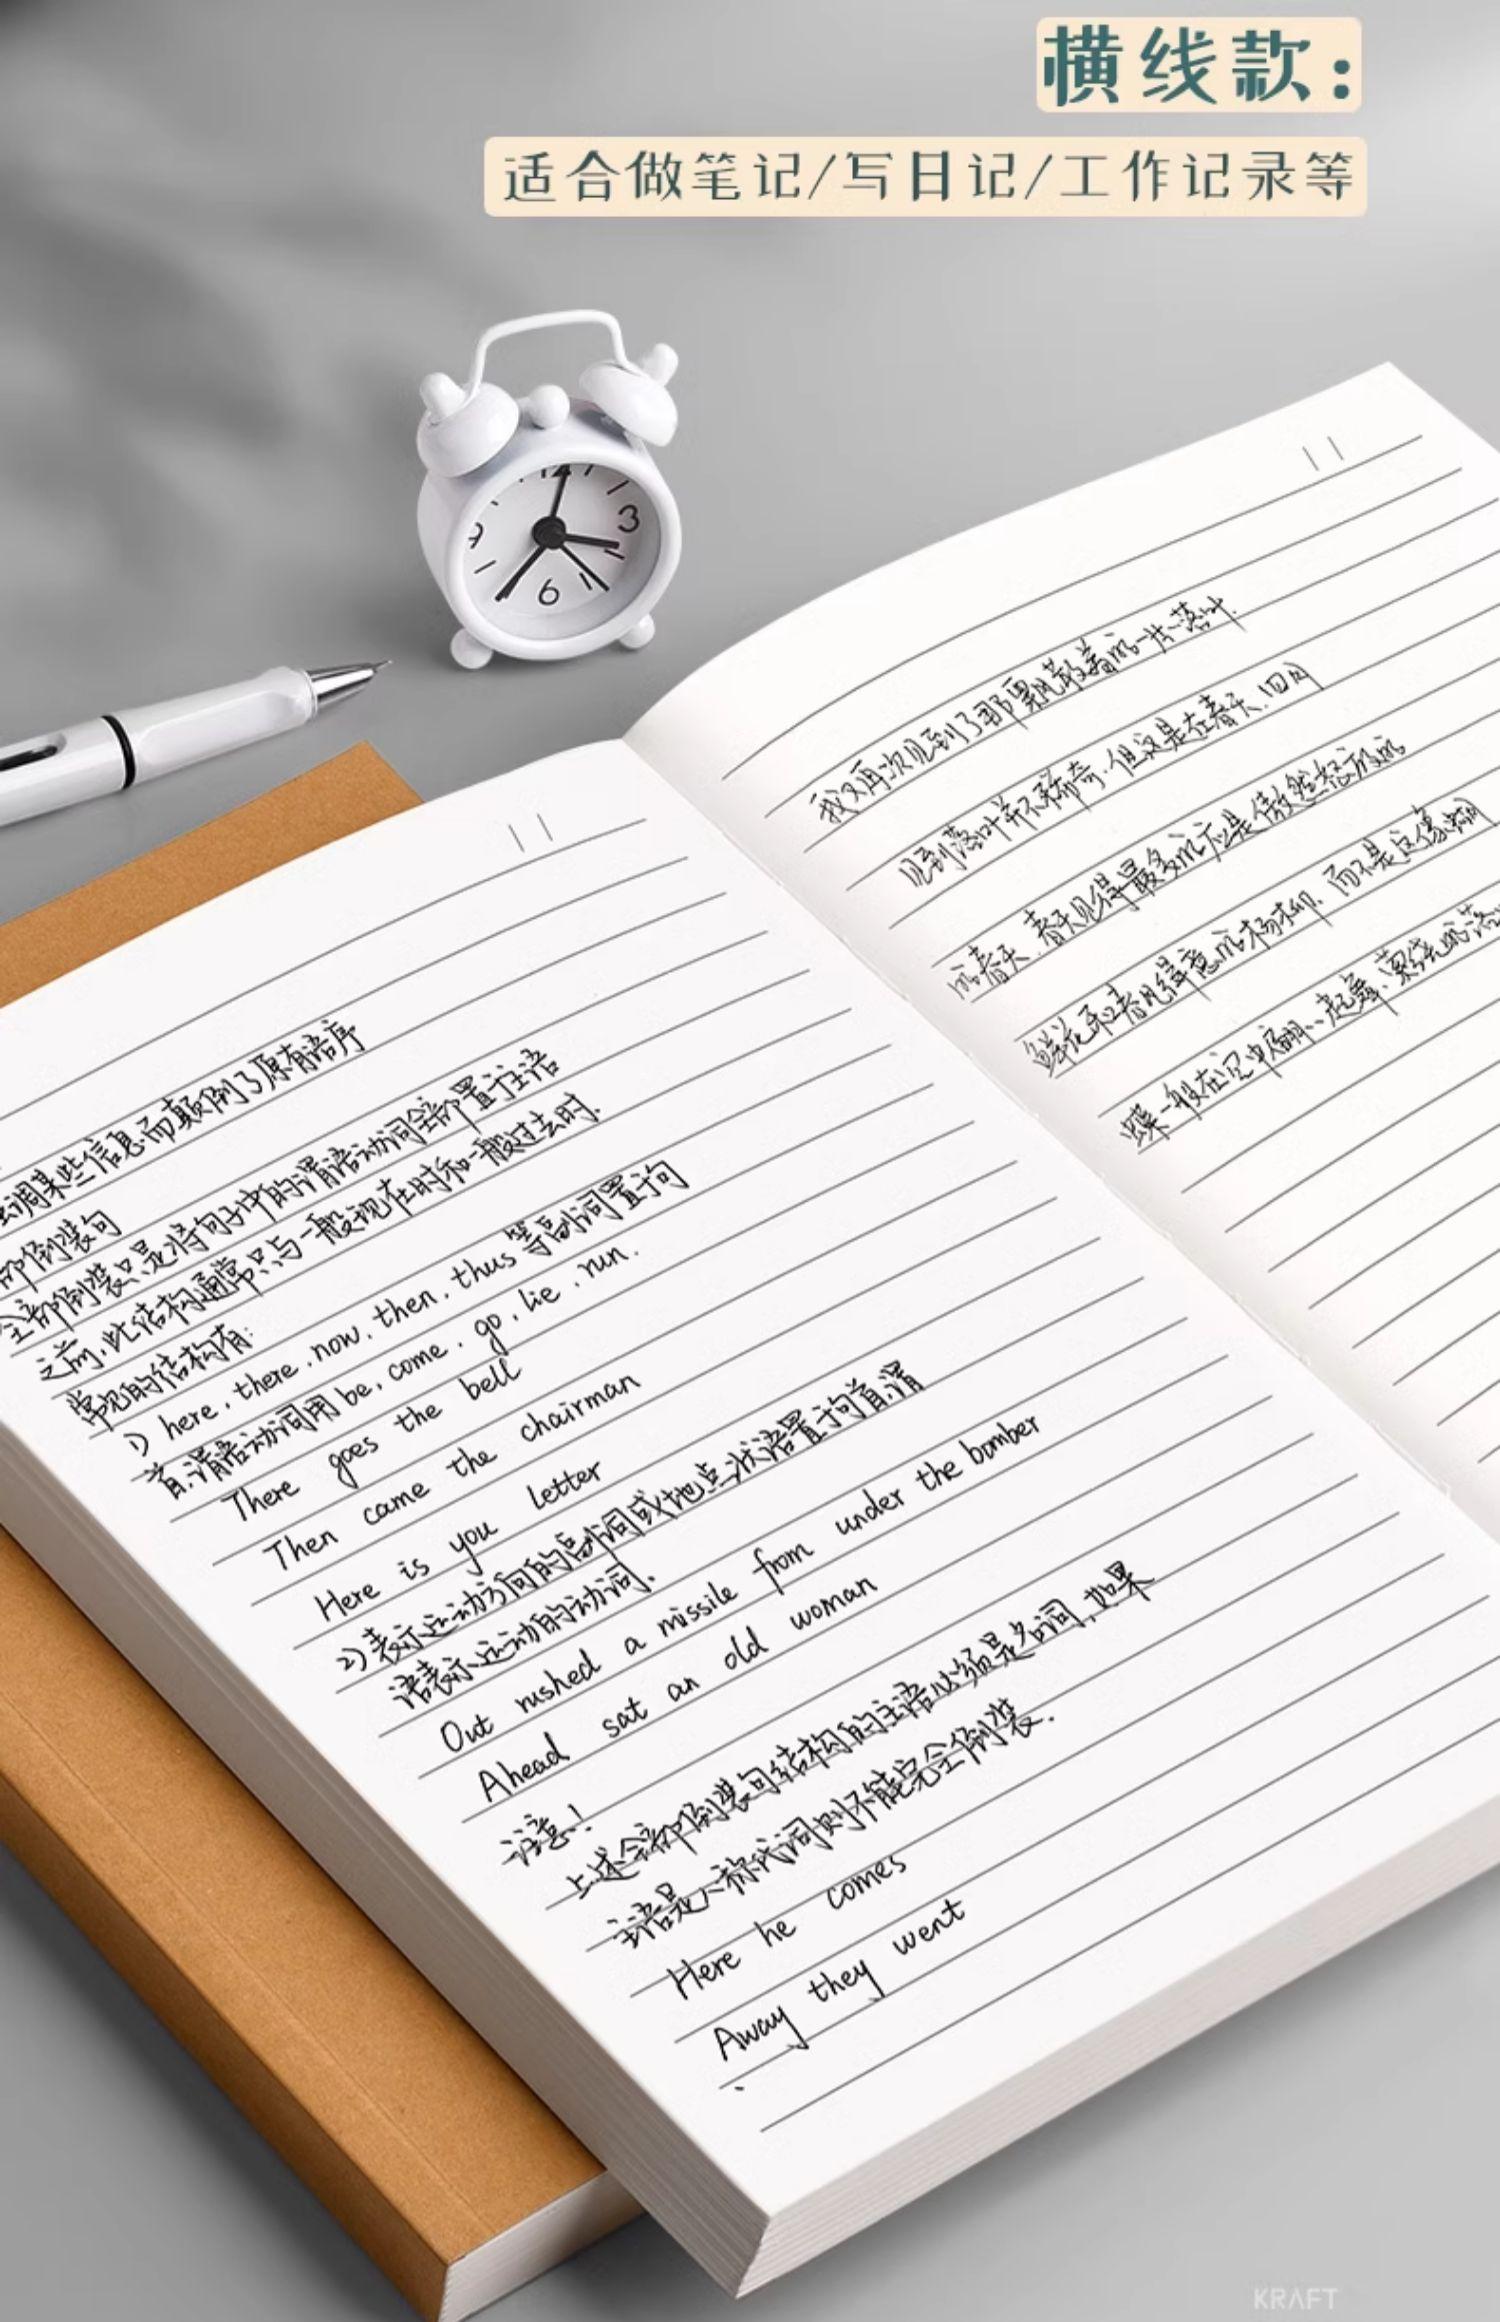 横线款：
适合做笔记/写日记/工作记录等
调某些信息而颠倒了原有语序
部倒装句
全部倒装只是将句子中的谓语动词全部置于主语
之前，此结构通常只与一般现在时和一般过去时.
常见的结构有:
1) here, there, now, then, thus 等副词置于句
首,谓语动词用 be, come, go, lie, run.
There goes the bell
Then came the chairman
Here is you letter
2) 表示运动方向的副词或地点状语置于句首,谓
语表示运动的动词.
Out rushed a missile from under the bomber
Ahead sat an old woman
注意!
上述全部倒装句结构的主语必须是名词,如果
主语是人称代词则不能完全倒装.
Here he comes
Away they went
我又再次见到了那飘散着的一片落叶.
见到落叶并不稀奇,但这是在春天,因为
的春天,春天见得最多的应是傲然怒放的
鲜花和春风得意的杨柳,而不是这像蝴
蝶一般在空中翩翩起舞、萦绕的落
KRAFT